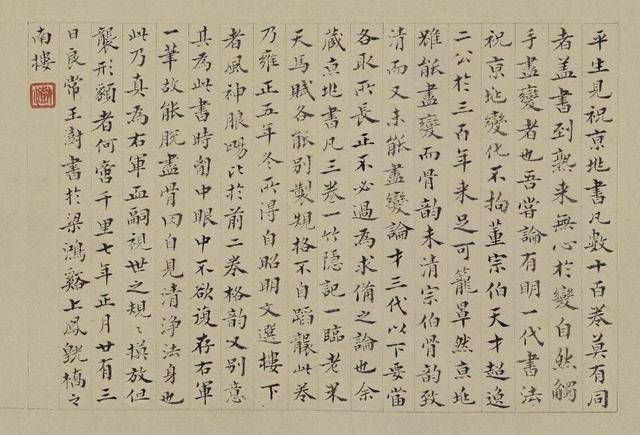 平生見祝京兆書凡數十百卷莫有同
者盖書到熟来無心於變自然觸
手盡變者也吾嘗論有明一代書法
祝京兆變化不拘董宗伯天才超逸
二公於三百年来足可籠罩然京兆
雖能盡變而骨韵未清宗伯骨韵致
清而又未能盡變論才三代以下要當
各取所長正不必過為求備之論也余
藏京兆書凡三卷一竹隱記一臨老米
天馬賦各能别製規格不自蹈襲此卷
乃雍正五年冬所得自昭明文選樓下
者風神腴暢比於前二卷格韵又别意
其為此書時匈中眼中不欲復存右軍
一筆故能脱盡骨肉自見清淨法身也
此乃真為右軍血嗣視世之規〻摸放但
襲形貌者何啻千里七年正月廿有三
日良常王澍書於梁鴻谿上鳳橋之
南樓